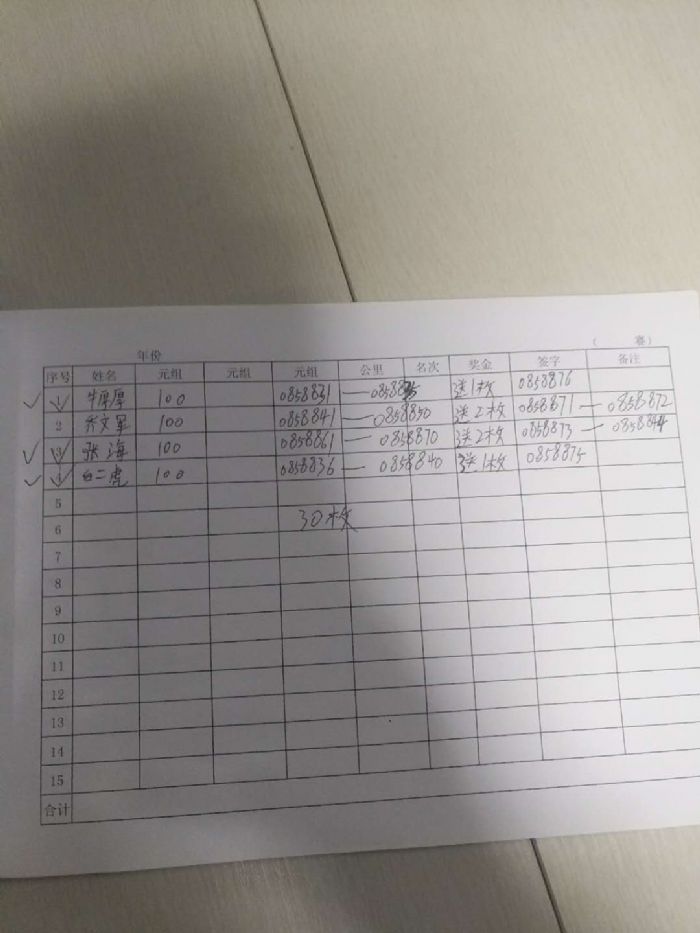 年份 ( 赛)
序号 姓名 元组 元组 元组 公里 名次 奖金 签字 备注
1 厚 100 0858831 — 08588 送1枚 0858876
2 乔文军 100 0858841 — 0858850 送2枚 0858871 — 0858872
3 张海 100 0858861 — 0858870 送2枚 0858873 — 0858844
4 白二虎 100 0858836 — 0858840 送1枚 0858875
5
6 30枚
7
8
9
10
11
12
13
14
15
合计